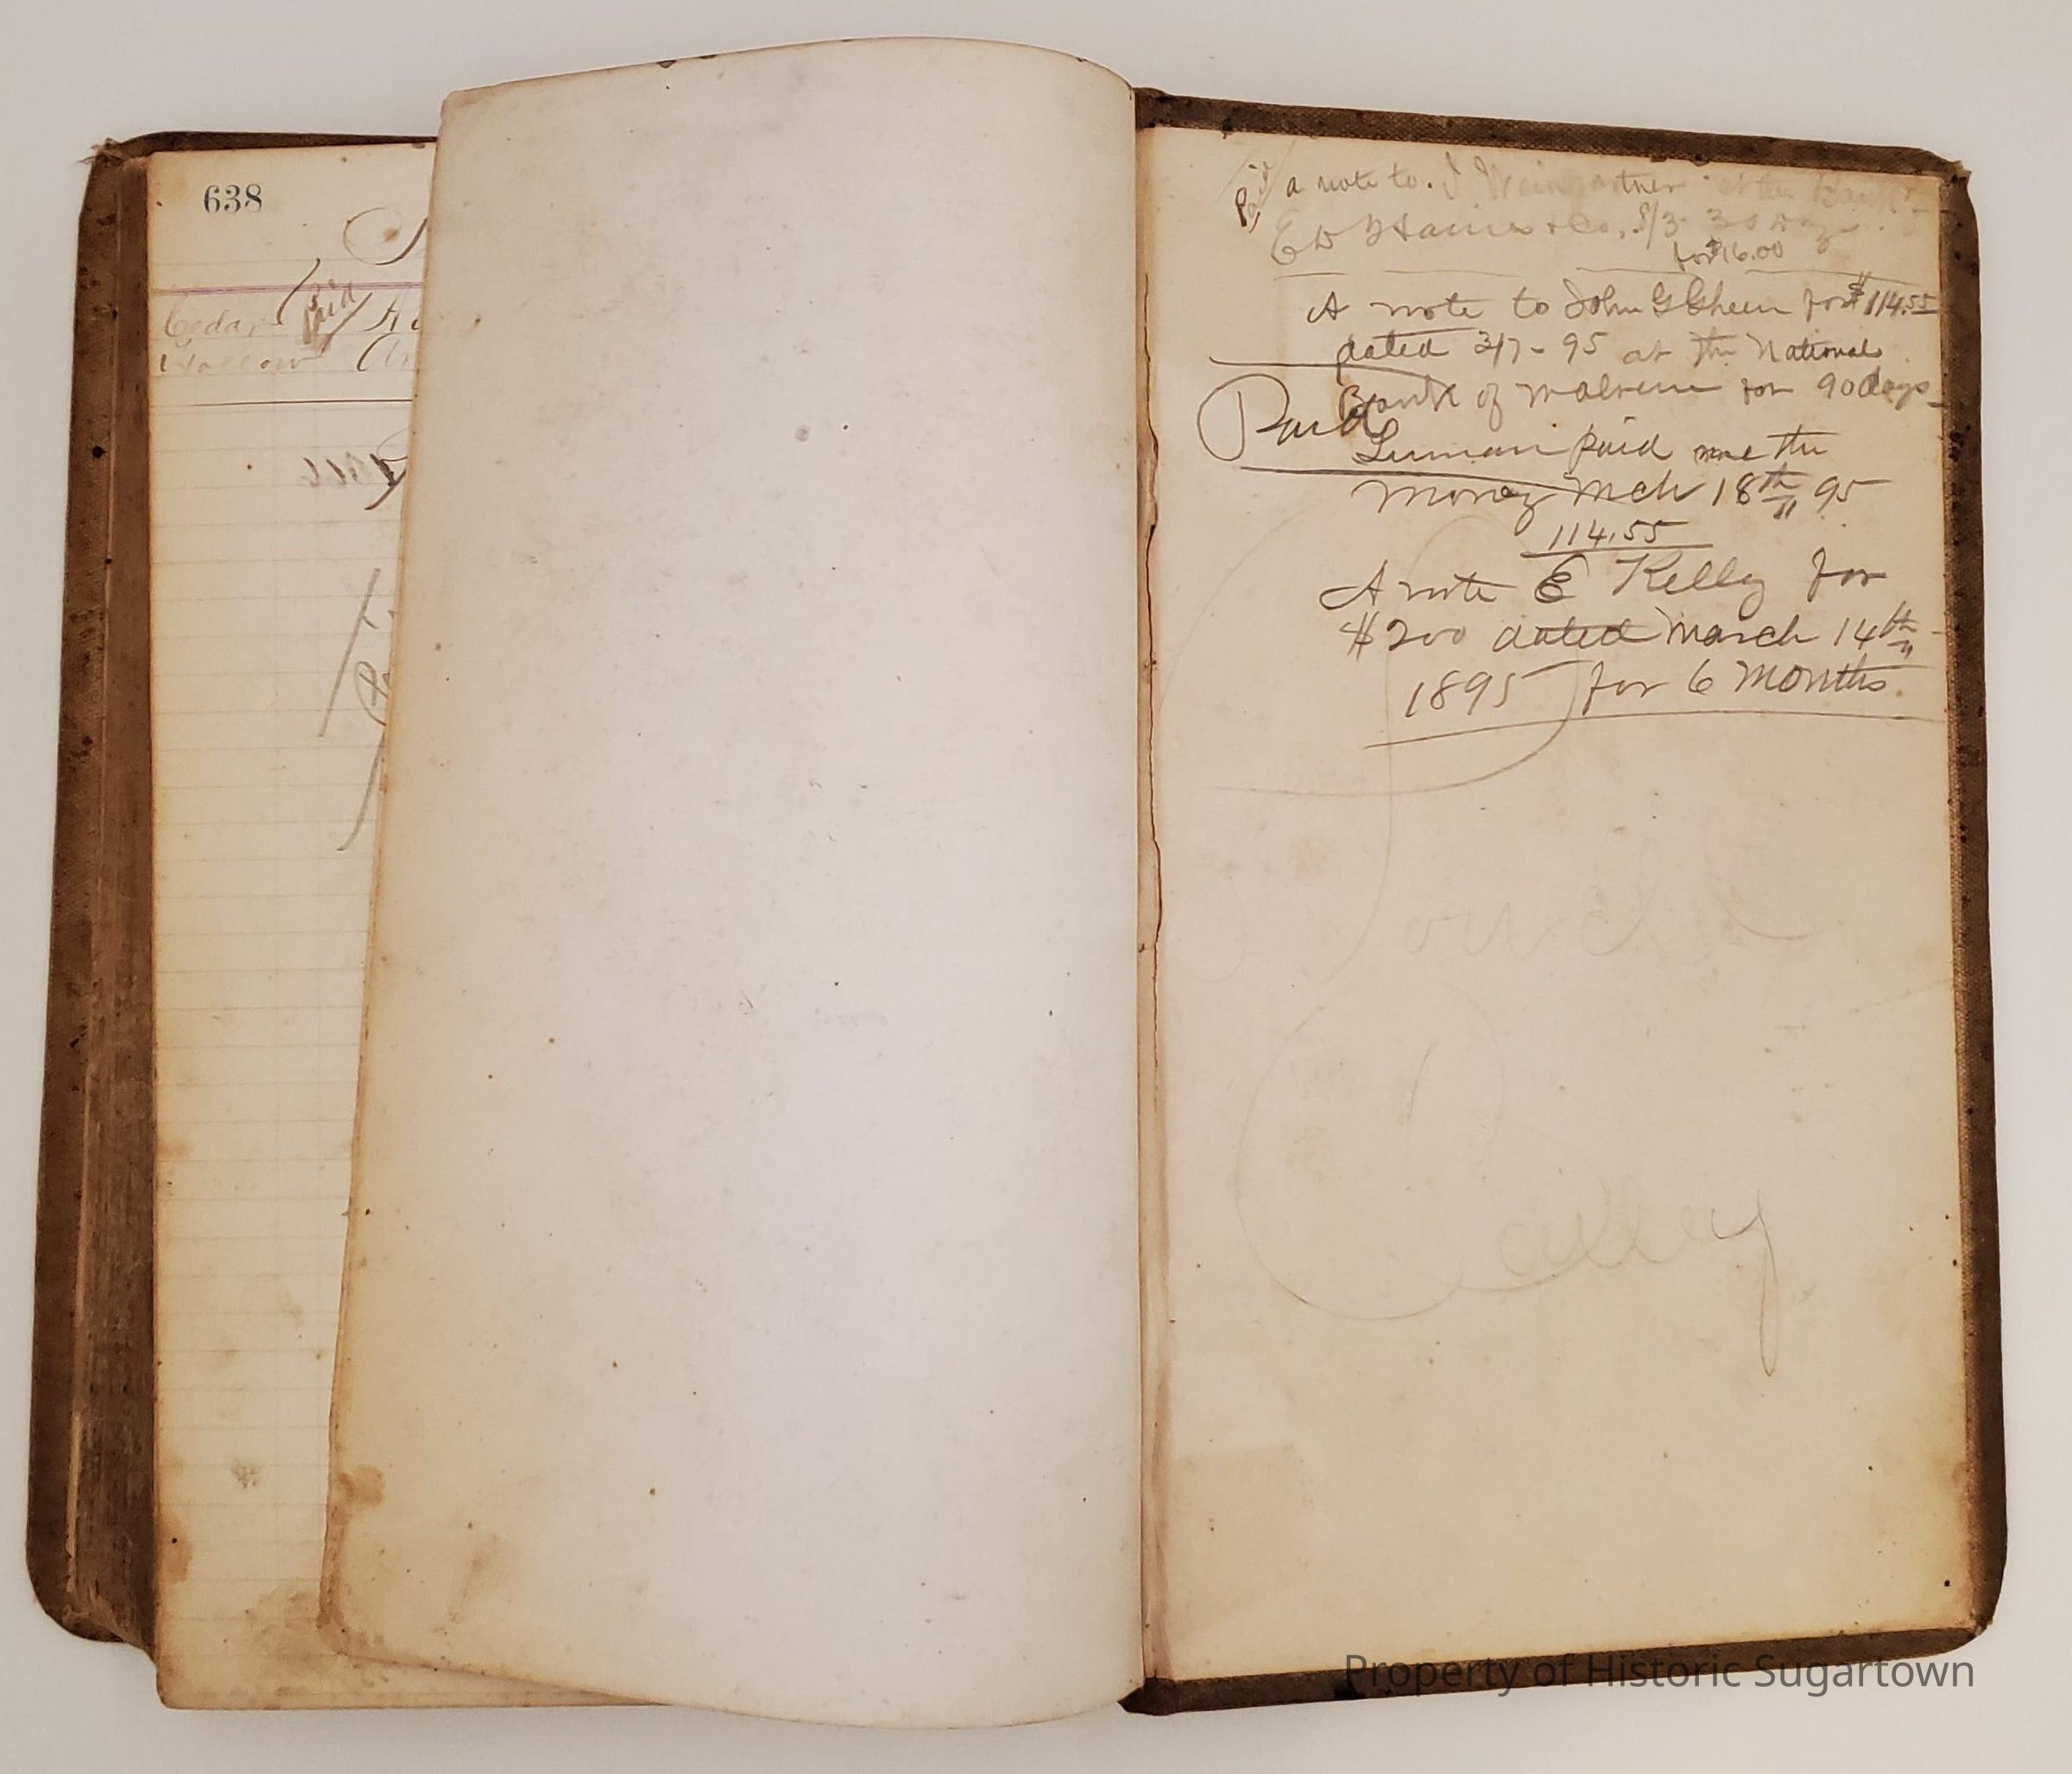 638
Paid
Cedar
Hollow
Paid a note to. J
Ed Haines & Co. 8/3 30 Days
for $16.00
A note to John G Gheen for $114.55
dated 3/7-95 at the National
Bank of Malvern for 90 days
Paid
Luman paid me the
Money Mch 18th 95
114.55
A note E Kelly for
$200 dated March 14th
1895 for 6 Months.
Property of Historic Sugartown